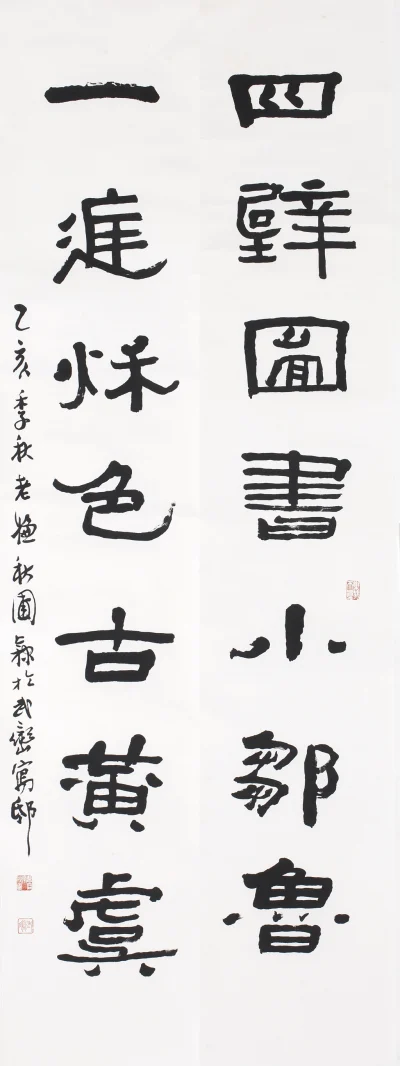 四壁圖書小鄒魯
一庭秋色古黃虞
乙亥季秋老秋圃於武巒寓邸